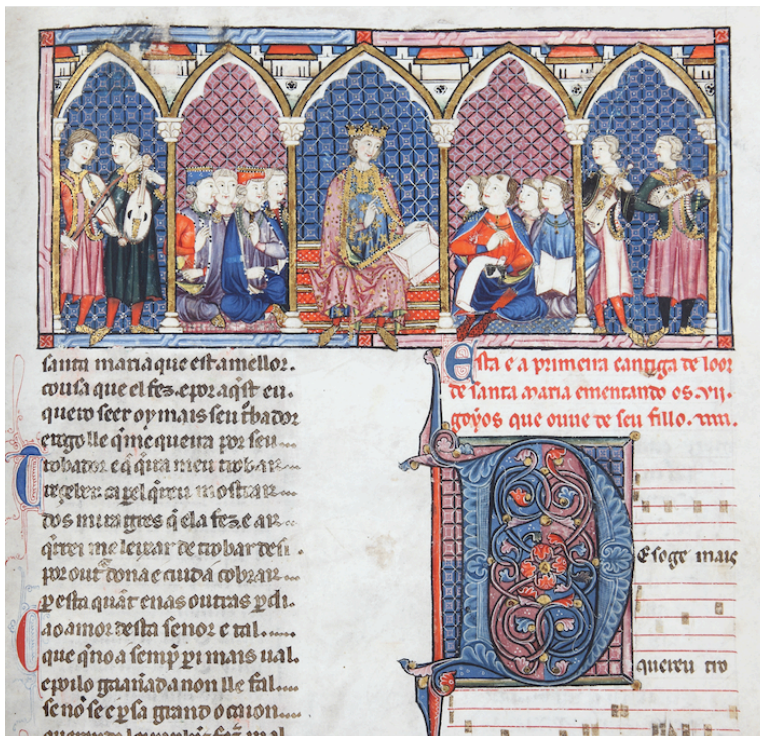 santa maria que est a mellor.
cousa que el fez. e por aqst eu.
quero seer oy mais seu tbador
e rogo lle q̄ me queira por seu
trobador e q̄ qira meu trobar
reçeber ca per el q̄rreu mostrar
dos miragres q̄ ela fez. e ar
q̄rrei me leixar de trobar desi.
por out dona e cuida cobrar
per esta quāt enas outras pdi.
Ca o amor desta señor e tal
que q̄no a semp̄ p i mais ual.
e poilo gaañada non lle fal
se nō se e p sa grand ocaion
Esta e a primeira cantiga de loor
de santa maria ementando os. vij.
goyos que ouue de seu fillo.
D Es oge mais
quereu tro